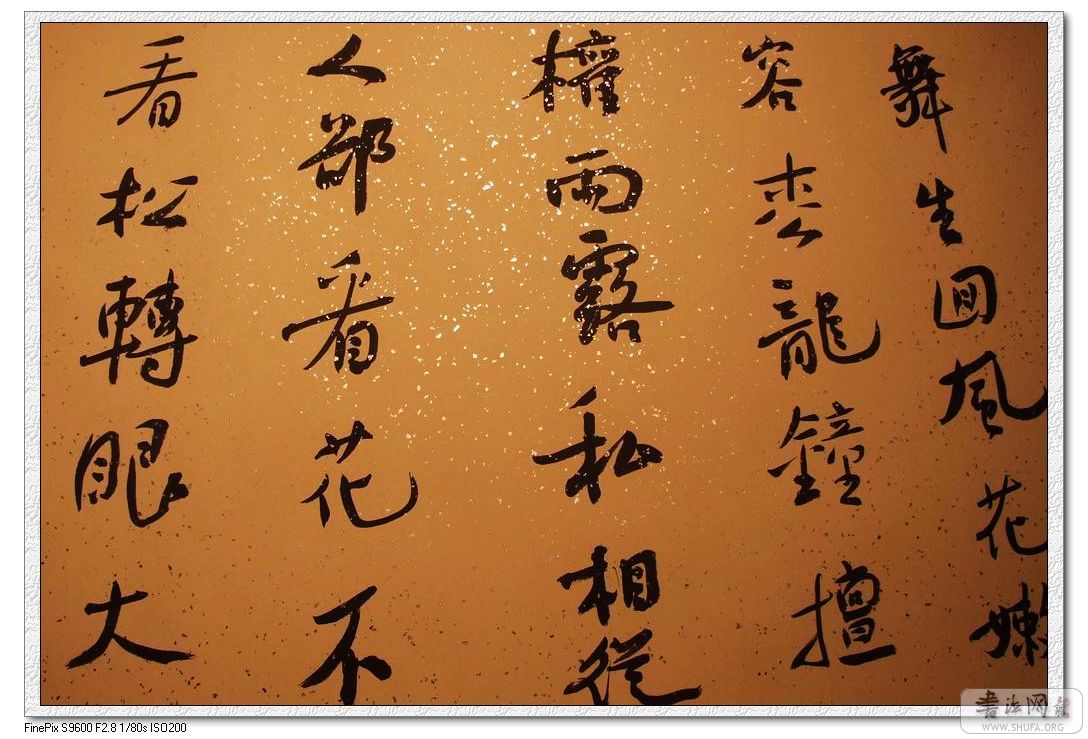 舞生回風花嫩
容枩龍鐘擅
權雨露私相從
人都看花不
看松轉眼大
FinePix S9600 F2.8 1/80s ISO200
书法网
WWW.SHUFA.ORG